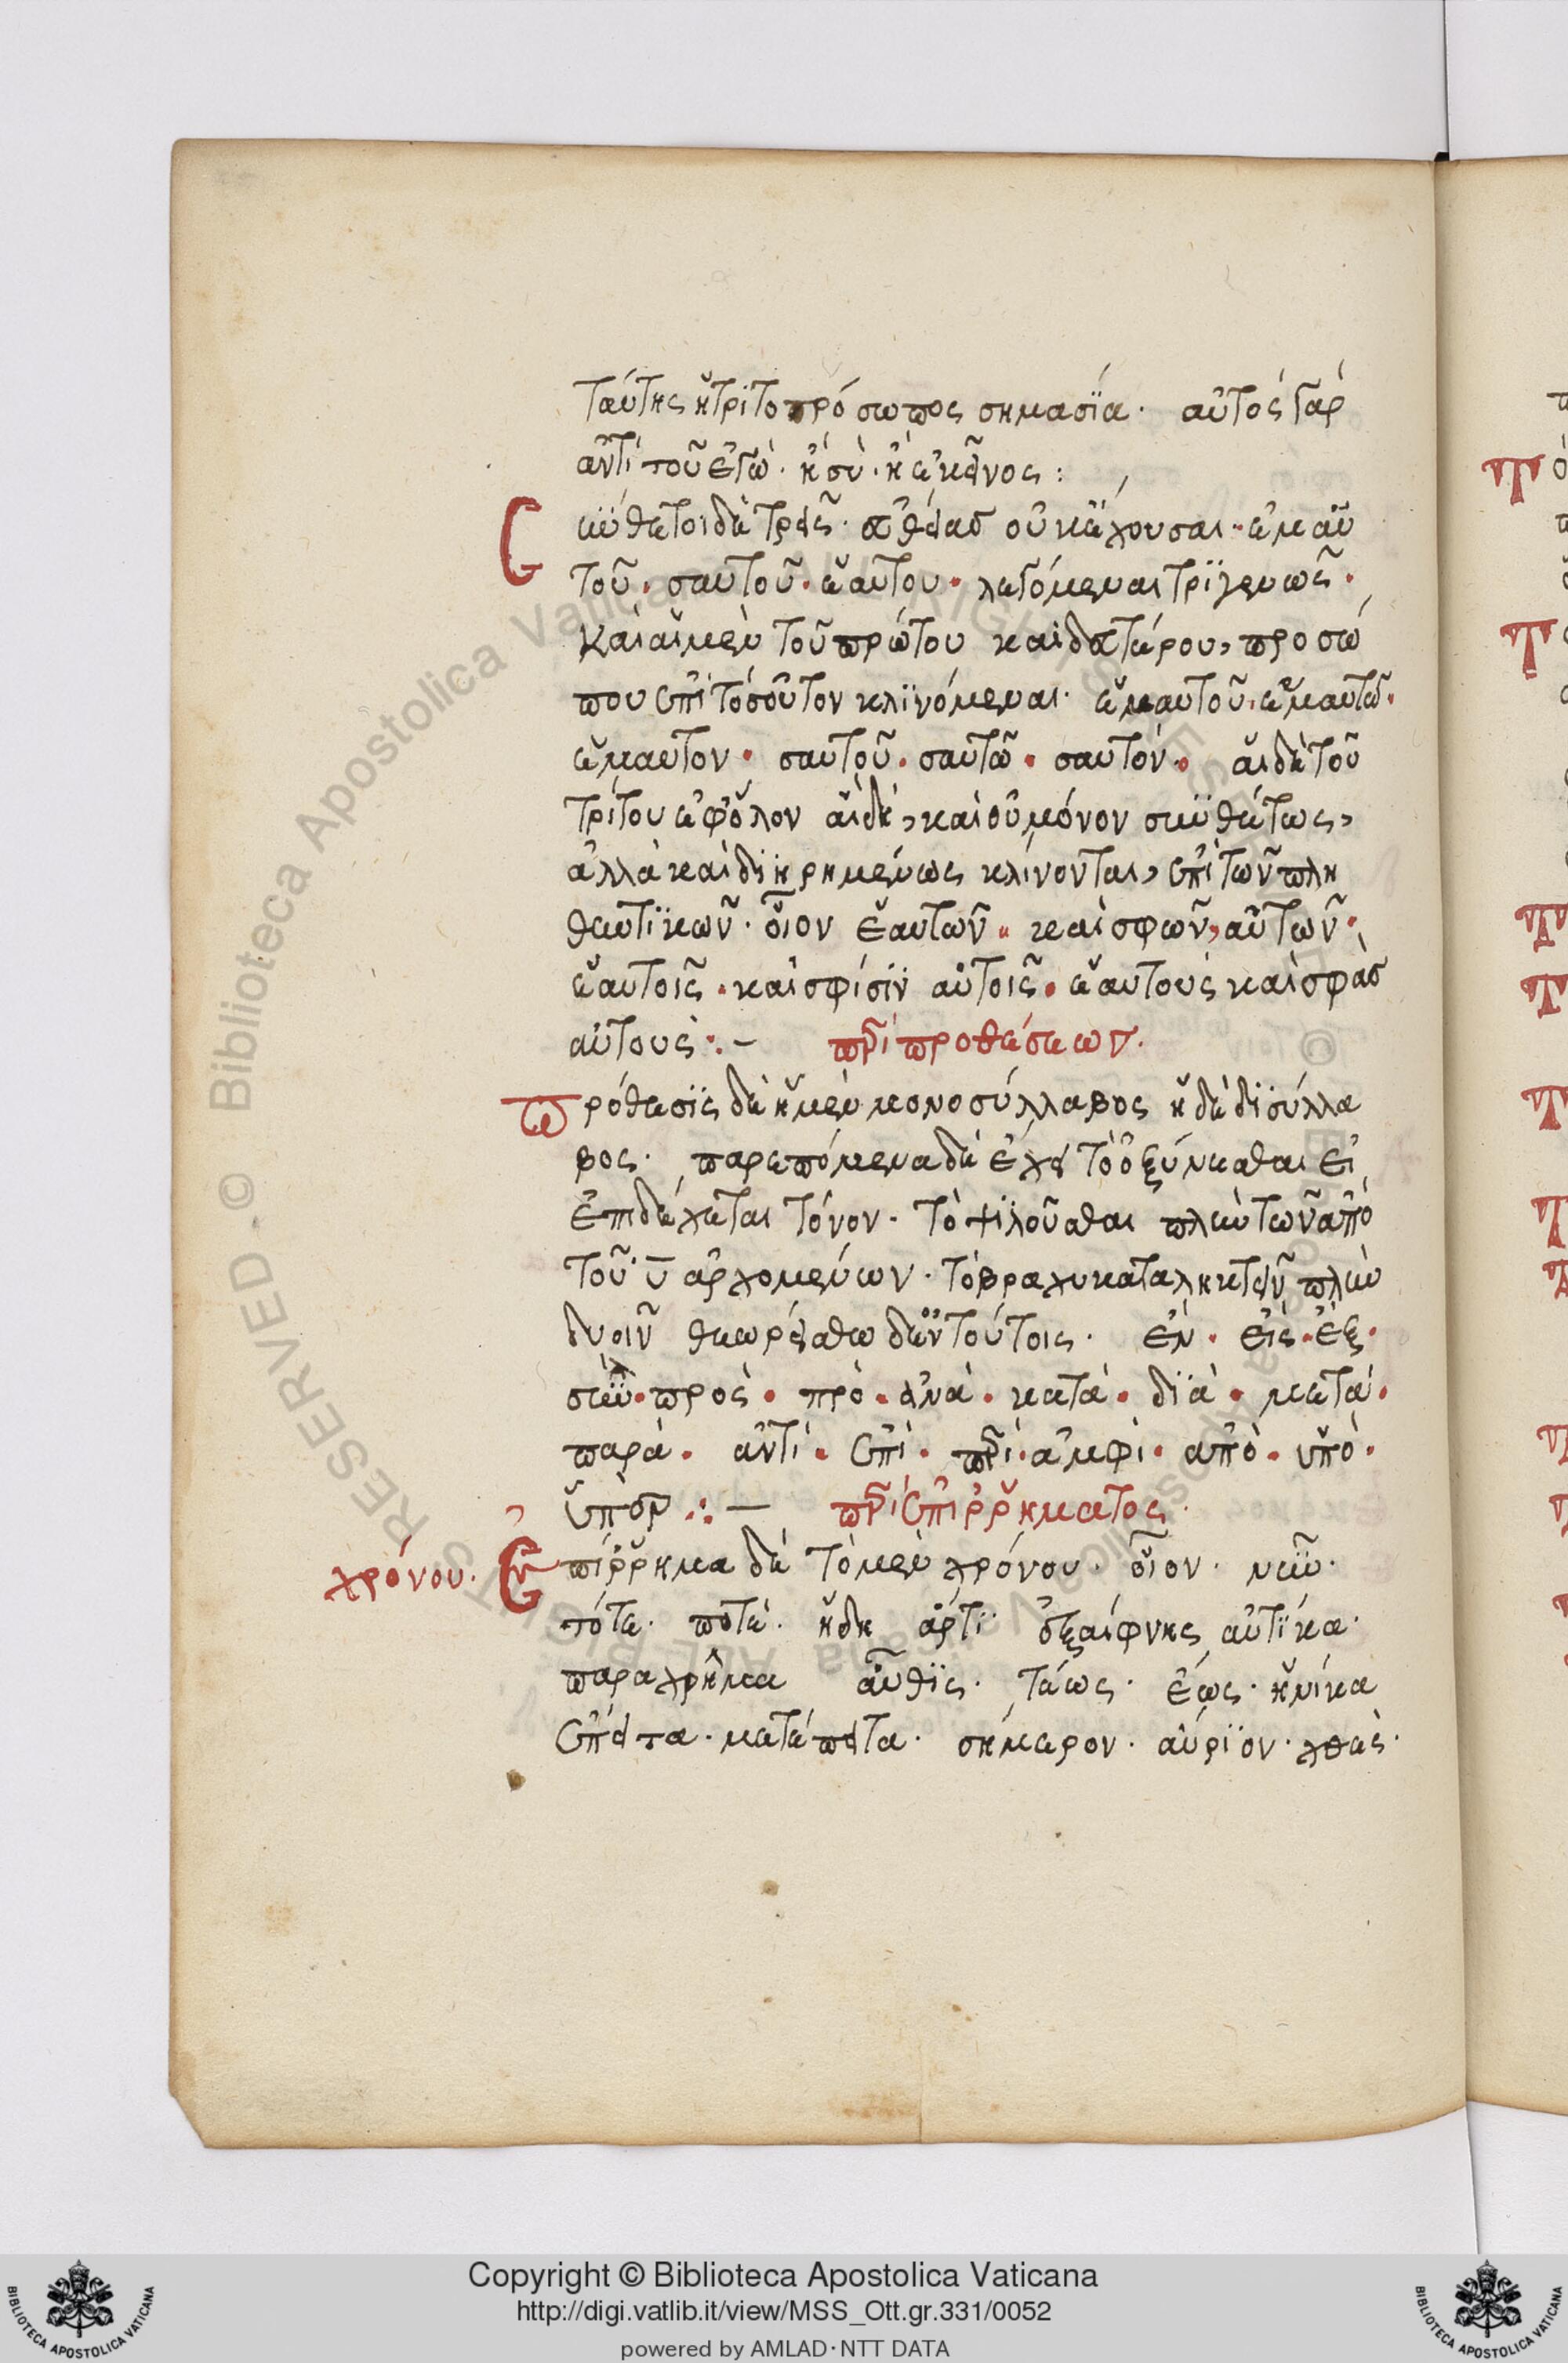 ταύτης ἡ τριτοπρόσωπος σημασϊα· αὐτὸς γὰρ
ἀντὶ τοῦ ἐγὼ· ἢ σὺ· ἢ ἐκεῖνος:
Σύνθετοι δὲ τρεῖς· εὐθείας οὐκ ἔχουσαι· ἐμαυ
τοῦ· σαυτοῦ· ἑαυτου· λεγόμεναι τρϊγενῶς·
Καὶ αἱ μὲν τοῦ πρώτου καὶ δευτέρου, προσώ
που ἐπὶ τοσοῦτον κλϊνόμεναι· ἐμαυτοῦ· ἐμαυτῶ·
ἐμαυτον· σαυτοῦ· σαυτῶ· σαυτόν· αἱ δὲ τοῦ
τρίτου ἐφ' ὅλον αἱ δὴ, καὶ οὐ μόνον συνθέτως,
ἀλλὰ καὶ διῃρημένως κλίνονται, ἐπὶ τῶν πλη
θυντϊκῶν· οἷον ἑαυτῶν· καὶ σφῶν, αὐτῶν·
ἑαυτοῖς· καὶ σφίσϊν αὐτοῖς· ἑαυτοὺς καὶ σφᾶς
αὐτοὺς:. – περὶ προθέσεων.
Πρόθεσϊς δὲ ἡ μὲν μονοσύλλαβος ἡ δὲ δϊσύλλα
βος· παρεπόμενα δὲ ἔχει τὸ ὀξύνεσθαι εἰ
ἐπιδέχεται τόνον· τὸ ψϊλοῦσθαι πλὴν τῶν ἀπὸ
τοῦ υ ἀρχομένων· τὸ βραχυκαταληκτεῖν πλὴν
δυοῖν θεωρείσθω δ' ἂν τούτοις· ἐν· εἰς· ἐξ·
σὺν· πρὸς· πρὸ· ἀνὰ· κατὰ· δϊὰ· μετὰ·
παρὰ· ἀντὶ· ἐπὶ· περὶ· ἀμφὶ· ἀπὸ· ὑπὸ·
ὑπὲρ :. — περὶ ἐπιρρήματος·
χρόνου· Ἐπίρρημα δὲ τὸ μὲν χρόνου· οἷον· νῦν·
τότε· ποτὲ· ἤδη ἄρτϊ ἐξαίφνης αὐτίκα·
παραχρῆμα αὖθϊς· τέως· ἕως· ἡνίκα
ἔπειτα· μετέπειτα· σήμερον· αὔρϊον· χθὲς·
Copyright © Biblioteca Apostolica Vaticana
http://digi.vatlib.it/view/MSS_Ott.gr.331/0052
powered by AMLAD·NTT DATA